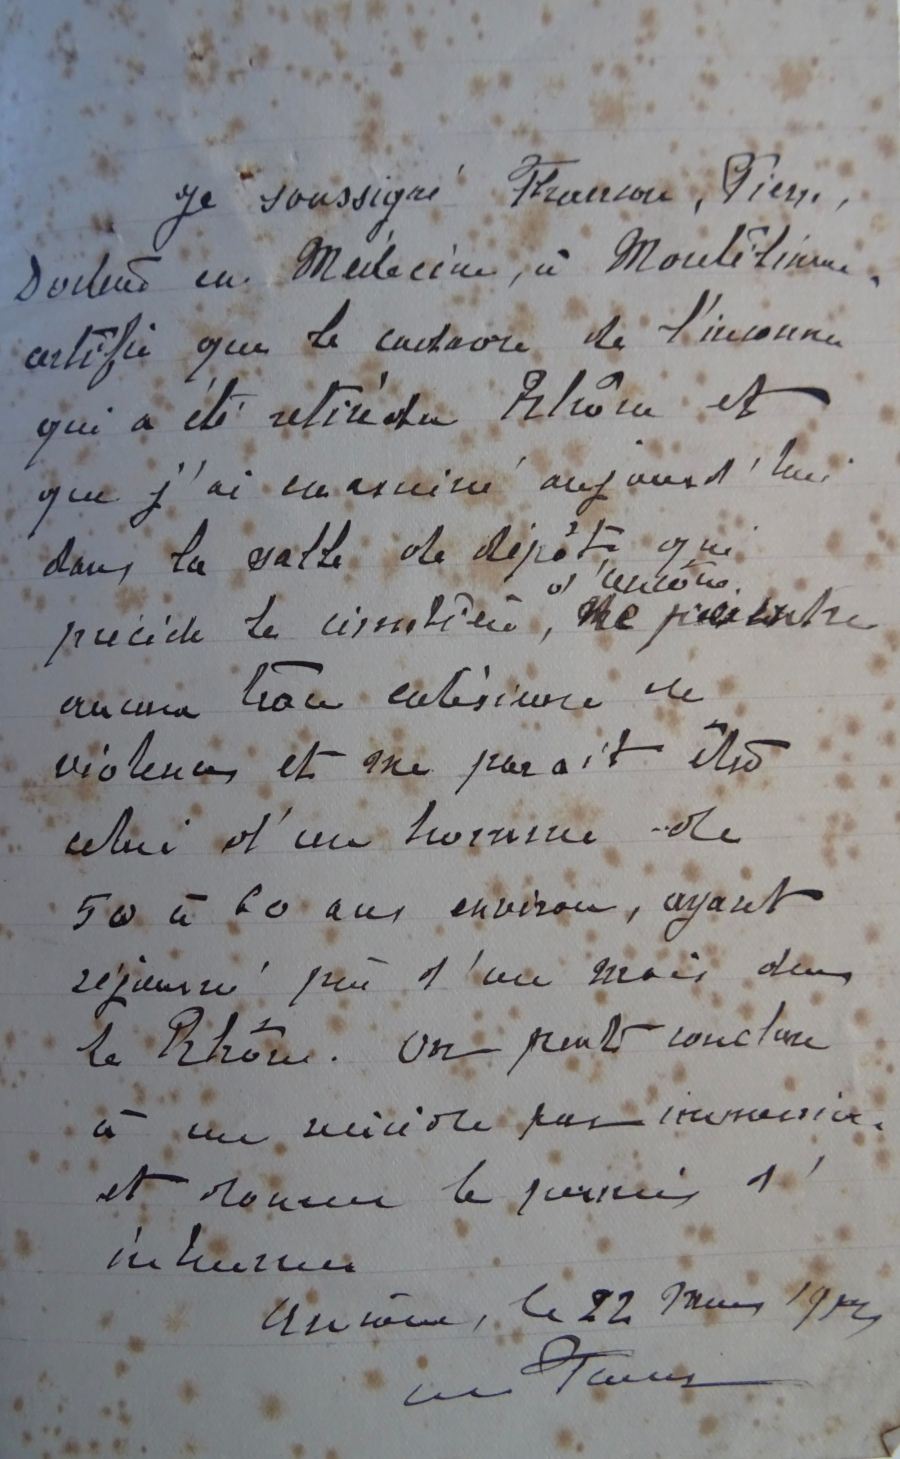 Je soussigné Francou, Pierre,
Docteur en Médecine, à Montélimar,
certifie que le cadavre de l'inconnu
qui a été retiré du Rhône et
que j'ai examiné aujourd'hui
dans la salle de dépôt qui
d'Ancône
précède le cimetière, ne présente
aucune trace extérieure de
violences et me parait être
celui d'un homme de
50 à 60 ans environ, ayant
séjourné près d'un mois dans
le Rhône. On peut conclure
à un suicide par immersion
et donner le permis d'
inhumer
Ancône, le 22 Mars